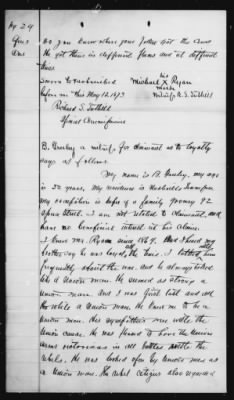 Do you know where your father got the arms
He got them in different places and at different
times
Sworn to & subscribed his
before me this May 12, 1873 Michael X Ryan
mark
Richard S. Tuthill witness R. S. Tuthill
Special Commissioner
B. a witness, for claimant as to loyalty
says as follows
My name is B. my age
is 52 years, My residence is Nashville Tennessee
my occupation is of a family grocery 92
street. I am not related to claimant, and
have no beneficial interest in his claim.
I knew Mr. Ryan since 1869. And I heard my
brother say he was loyal, all the time. I talked with him
frequently about the war, and he always talked
like a Union man. He seemed as strong a
Union man. And I was first last and all
the while a Union man. He knew me to be a
Union man. His sympathies were with the
Union cause. He was pleased to have the Union
arms victorious in all battles all the
while. He was looked upon by Union men as
a Union man. The rebel citizens also regarded